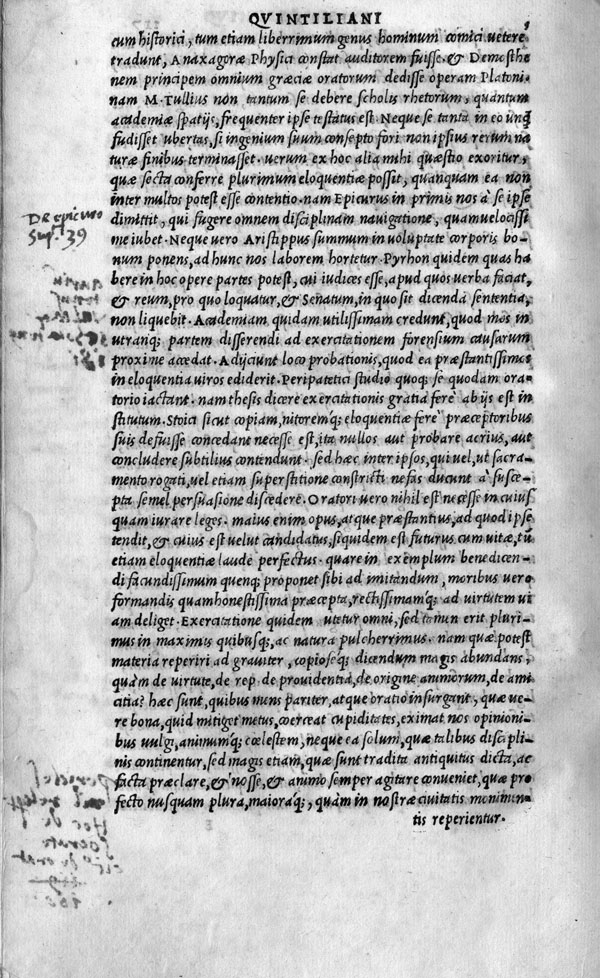 QVINTILIANI
cum historici, tum etiam liberrimum genus hominum comici uetere
tradunt, Anaxagoræ Physici constat auditorem fuisse. & Demosthe
nem principem omnium græciæ oratorum dedisse operam Platoni.
nam M. Tullius non tantum se debere scholis rhetorum, quantum
academiæ spatijs, frequenter ipse testatus est. Neque se tanta in eo unq
fudisset ubertas, si ingenium suum consepto fori non ipsius rerum na
turæ finibus terminasset. uerum ex hoc alia mihi quæstio exoritur,
quæ secta conferre plurimum eloquentiæ possit, quanquam ea non
inter multos potest esse contentio. nam Epicurus in primis nos à se ipse
dimittit, qui fugere omnem disciplinam nauigatione, quam uelocissi
me iubet. Neque uero Aristippus summum in uoluptate corporis bo-
num ponens, ad hunc nos laborem hortetur. Pyrhon quidem quas ha
bere in hoc opere partes potest, cui iudices esse, apud quos uerba faciat,
& reum, pro quo loquatur, & Senatum, in quo sit dicenda sententia,
non liquebit. Academiam quidam utilissimam credunt, quod mos in
utranq; partem disserendi ad exercitationem forensium causarum
proxime accedat. Adijciunt loco probationis, quod ea præstantissimos
in eloquentia uiros ediderit. Peripatetici studio quoq; se quodam ora-
torio iactant. nam thesis dicere exercitationis gratia ferè ab ijs est in
stitutum. Stoici sicut copiam, nitoremq; eloquentiæ ferè præceptoribus
suis defuisse concedant necesse est, ita nullos aut probare acrius, aut
concludere subtilius contendunt. sed hæc inter ipsos, qui uel, ut sacra-
mento rogati, uel etiam superstitione constricti nefas ducunt à susce-
pta semel persuasione discedere. Oratori uero nihil est necesse in cuius
quam iurare leges. maius enim opus, atque præstantius, ad quod ipse
tendit, & cuius est uelut candidatus, siquidem est futurus cum uitæ, tū
etiam eloquentiæ laude perfectus. quare in exemplum bene dicen-
di facundissimum quenq; proponet sibi ad imitandum, moribus uero
formandis quam honestissima præcepta, rectissimamq; ad uirtutem ui
am deliget. Exercitatione quidem utetur omni, sed tamen erit pluri-
mus in maximis quibusq;, ac natura pulcherrimus. nam quæ potest
materia reperiri ad grauiter, copioseq; dicendum magis abundans,
quàm de uirtute, de rep. de prouidentia, de origine animorum, de ami
citia? hæc sunt, quibus mens pariter, atque oratio insurgant, quæ ue-
re bona, quid mitiget metus, coerceat cupiditates, eximat nos opinioni-
bus uulgi, animumq; cœlestem, neque ea solum, quæ talibus discipli-
nis continentur, sed magis etiam, quæ sunt tradita antiquitus dicta, ac
facta præclare, & nosse, & animo semper agitare conueniet, quæ pro
fecto nusquam plura, maioraq;, quàm in nostræ ciuitatis monimen-
tis reperientur.
De epicuro
sup. 39